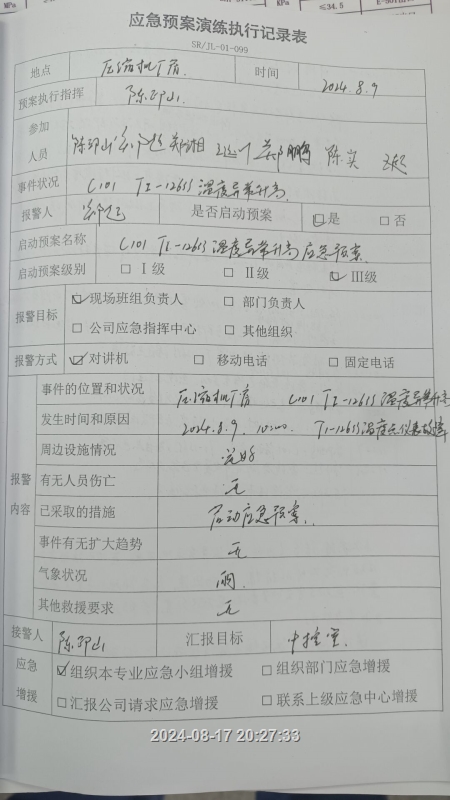 MPa
KPa
≤34.5
应急预案演练执行记录表
SR/JL-01-099
地点 压缩机厂房 时间 2024.8.9
预案执行指挥
参加人员 郑湘 陈实
事件状况 C101 TI-1261S 温度异常升高
报警人 是否启动预案 ☑是 □否
启动预案名称 C101 TI-1261S 温度异常升高应急预案
启动预案级别 □Ⅰ级 □Ⅱ级 ☑Ⅲ级
报警目标 ☑现场班组负责人 □部门负责人
□公司应急指挥中心 □其他组织
报警方式 ☑对讲机 □移动电话 □固定电话
报警内容
事件的位置和状况 压缩机厂房 C101 TI-1261S 温度异常升高
发生时间和原因 2024.8.9. 10:00 TI-1261S温度点仪表故障
周边设施情况 完好
有无人员伤亡 无
已采取的措施 启动应急预案.
事件有无扩大趋势 无
气象状况 雨
其他救援要求 无
接警人 汇报目标 中控室
应急增援 ☑组织本专业应急小组增援 □组织部门应急增援
□汇报公司请求应急增援 □联系上级应急中心增援
2024-08-17 20:27:33